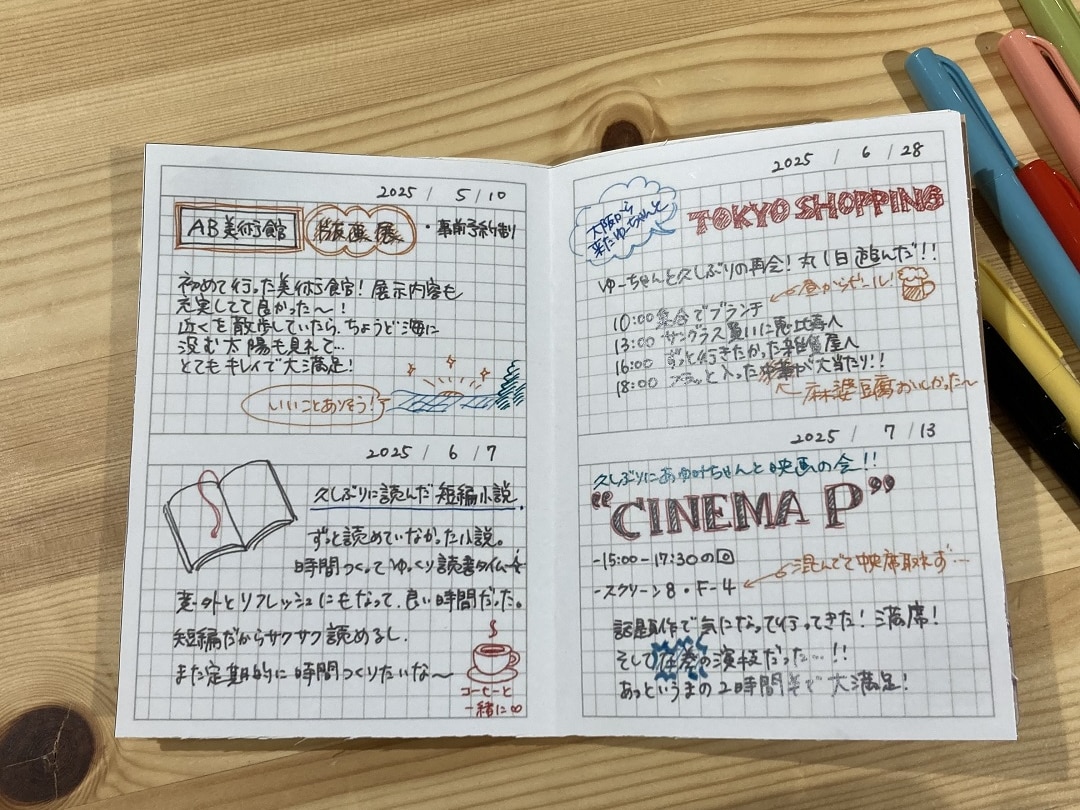 2025 / 5 / 10
AB美術館 版画展 ・事前予約制
初めて行った美術館! 展示内容も
充実してて良かった〜!
近くを散歩していたら、ちょうど海に
沈む太陽も見れて…
とてもキレイで大満足!
いいことありそう!
2025 / 6 / 7
久しぶりに読んだ短編小説。
ずっと読めていなかった小説。
時間つくってゆっくり読書タイム☆
意外とリフレッシュにもなって、良い時間だった。
短編だからサクサク読めるし、
また定期的に時間つくりたいな〜
コーヒーと
一緒に∞
2025 / 6 / 28
大阪から
来たゆーちゃんと
TOKYO SHOPPING
ゆーちゃんと久しぶりの再会! 丸1日遊んだ!!
昼からビール!
10:00 集合でブランチ
13:00 サングラス買いに恵比寿へ
16:00 ずっと行きたかった雑貨屋へ
18:00 フラッと入った中華が大当たり!!
麻婆豆腐おいしかった〜
2025 / 7 / 13
久しぶりにあゆみちゃんと映画の会!!
"CINEMA P"
-15:00-17:30の回
混んでて中央席取れず…
-スクリーン8・F-4
話題作で気になって行ってきた! 満席!
そして圧巻の演技だった…!!
あっというまの2時間半で大満足!